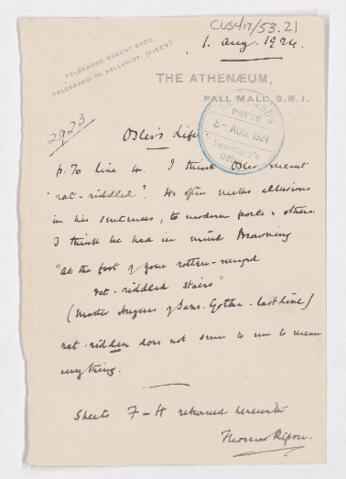 CUS417/53.21
1. Aug. 1924.
TELEPHONE REGENT
TELEGRAMS: HELLENIST, (PICCY)
THE ATHENÆUM,
PALL MALL, S.W.1.
PRESS
5 - AUG. 1924
Secretary's
Office
2923
Osler's Life.
p. 70 line 4. I think Osler meant
"rat-riddled". He often makes allusions
in his sentences, to modern poets & others.
I think he had in mind Browning
"At the foot of your rotten-runged
rat-riddled stairs"
(Master Hugues of Saxe-Gotha - last line)
rat-ridden does not seem to me to mean
anything.
Sheets F-H returned herewith